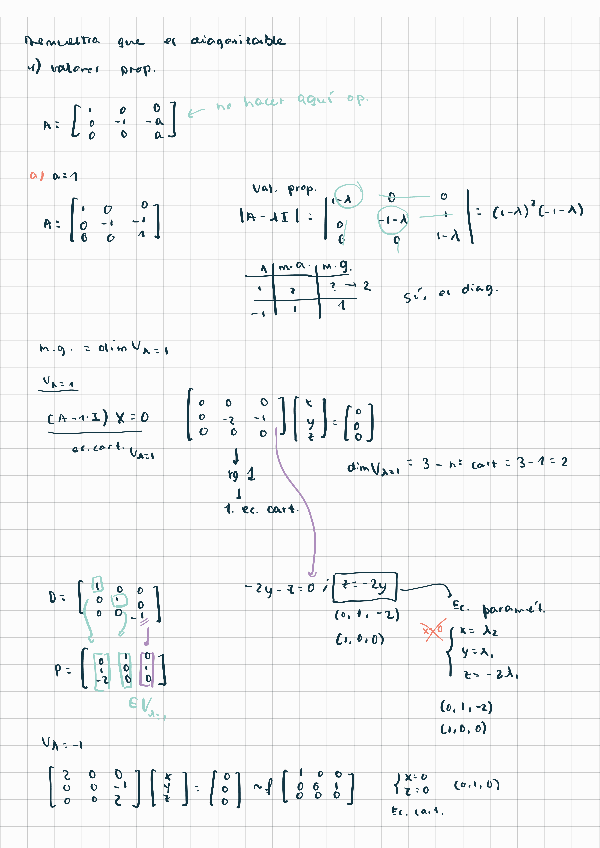 Demuestra que es diagonizable
4) valores prop.
A = [ 1 0 0 ; 0 -1 -a ; 0 0 a ] ← no hacer aquí op.
a) a=1
A = [ 1 0 0 ; 0 -1 -1 ; 0 0 1 ]
Val. prop.
|A-λI| = | 1-λ 0 0 ; 0 -1-λ 1 ; 0 0 1-λ | = (1-λ)² (-1-λ)
λ | m.a. | m.g.
1 | 2 | ? → 2
-1 | 1 | 1
Sí, es diag.
m.g. = dim Vλ=1
Vλ=1
(A-1·I) X = 0
ec. cart. Vλ=1
[ 0 0 0 ; 0 -2 -1 ; 0 0 0 ] [ x ; y ; z ] = [ 0 ; 0 ; 0 ]
rg 1
1. ec. cart.
dim Vλ=1 = 3 - nº cart = 3-1 = 2
D = [ 1 0 0 ; 0 1 0 ; 0 0 -1 ]
P = [ 0 1 0 ; 1 0 1 ; -2 0 0 ]
∈ Vλ=1
-2y - z = 0 ; z = -2y
(0, 1, -2)
(1, 0, 0)
Ec. paramét.
x=0
x = λ2
y = λ1
z = -2λ1
(0, 1, -2)
(1, 0, 0)
Vλ = -1
[ 2 0 0 ; 0 0 -1 ; 0 0 2 ] [ x ; y ; z ] = [ 0 ; 0 ; 0 ] ~f [ 1 0 0 ; 0 0 1 ; 0 0 0 ]
{ x=0
z=0 (0,1,0)
Ec. cart.